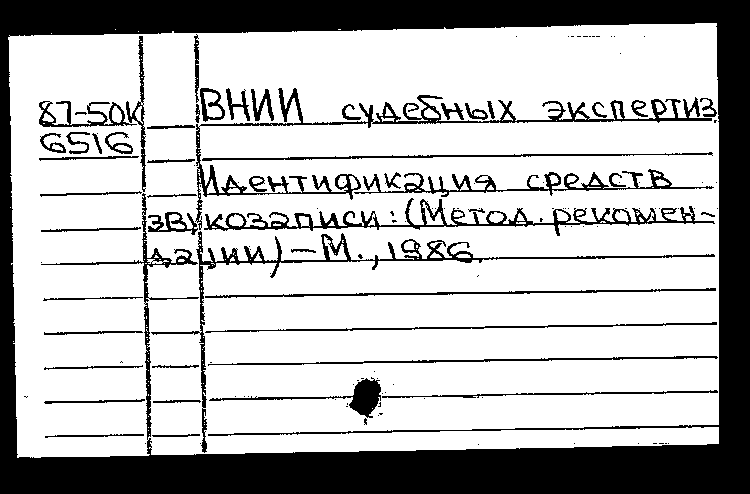 87-50К ВНИИ судебных экспертиз
6516
Идентификация средств
звукозаписи: (Метод. рекомен-
дации) – М., 1986.